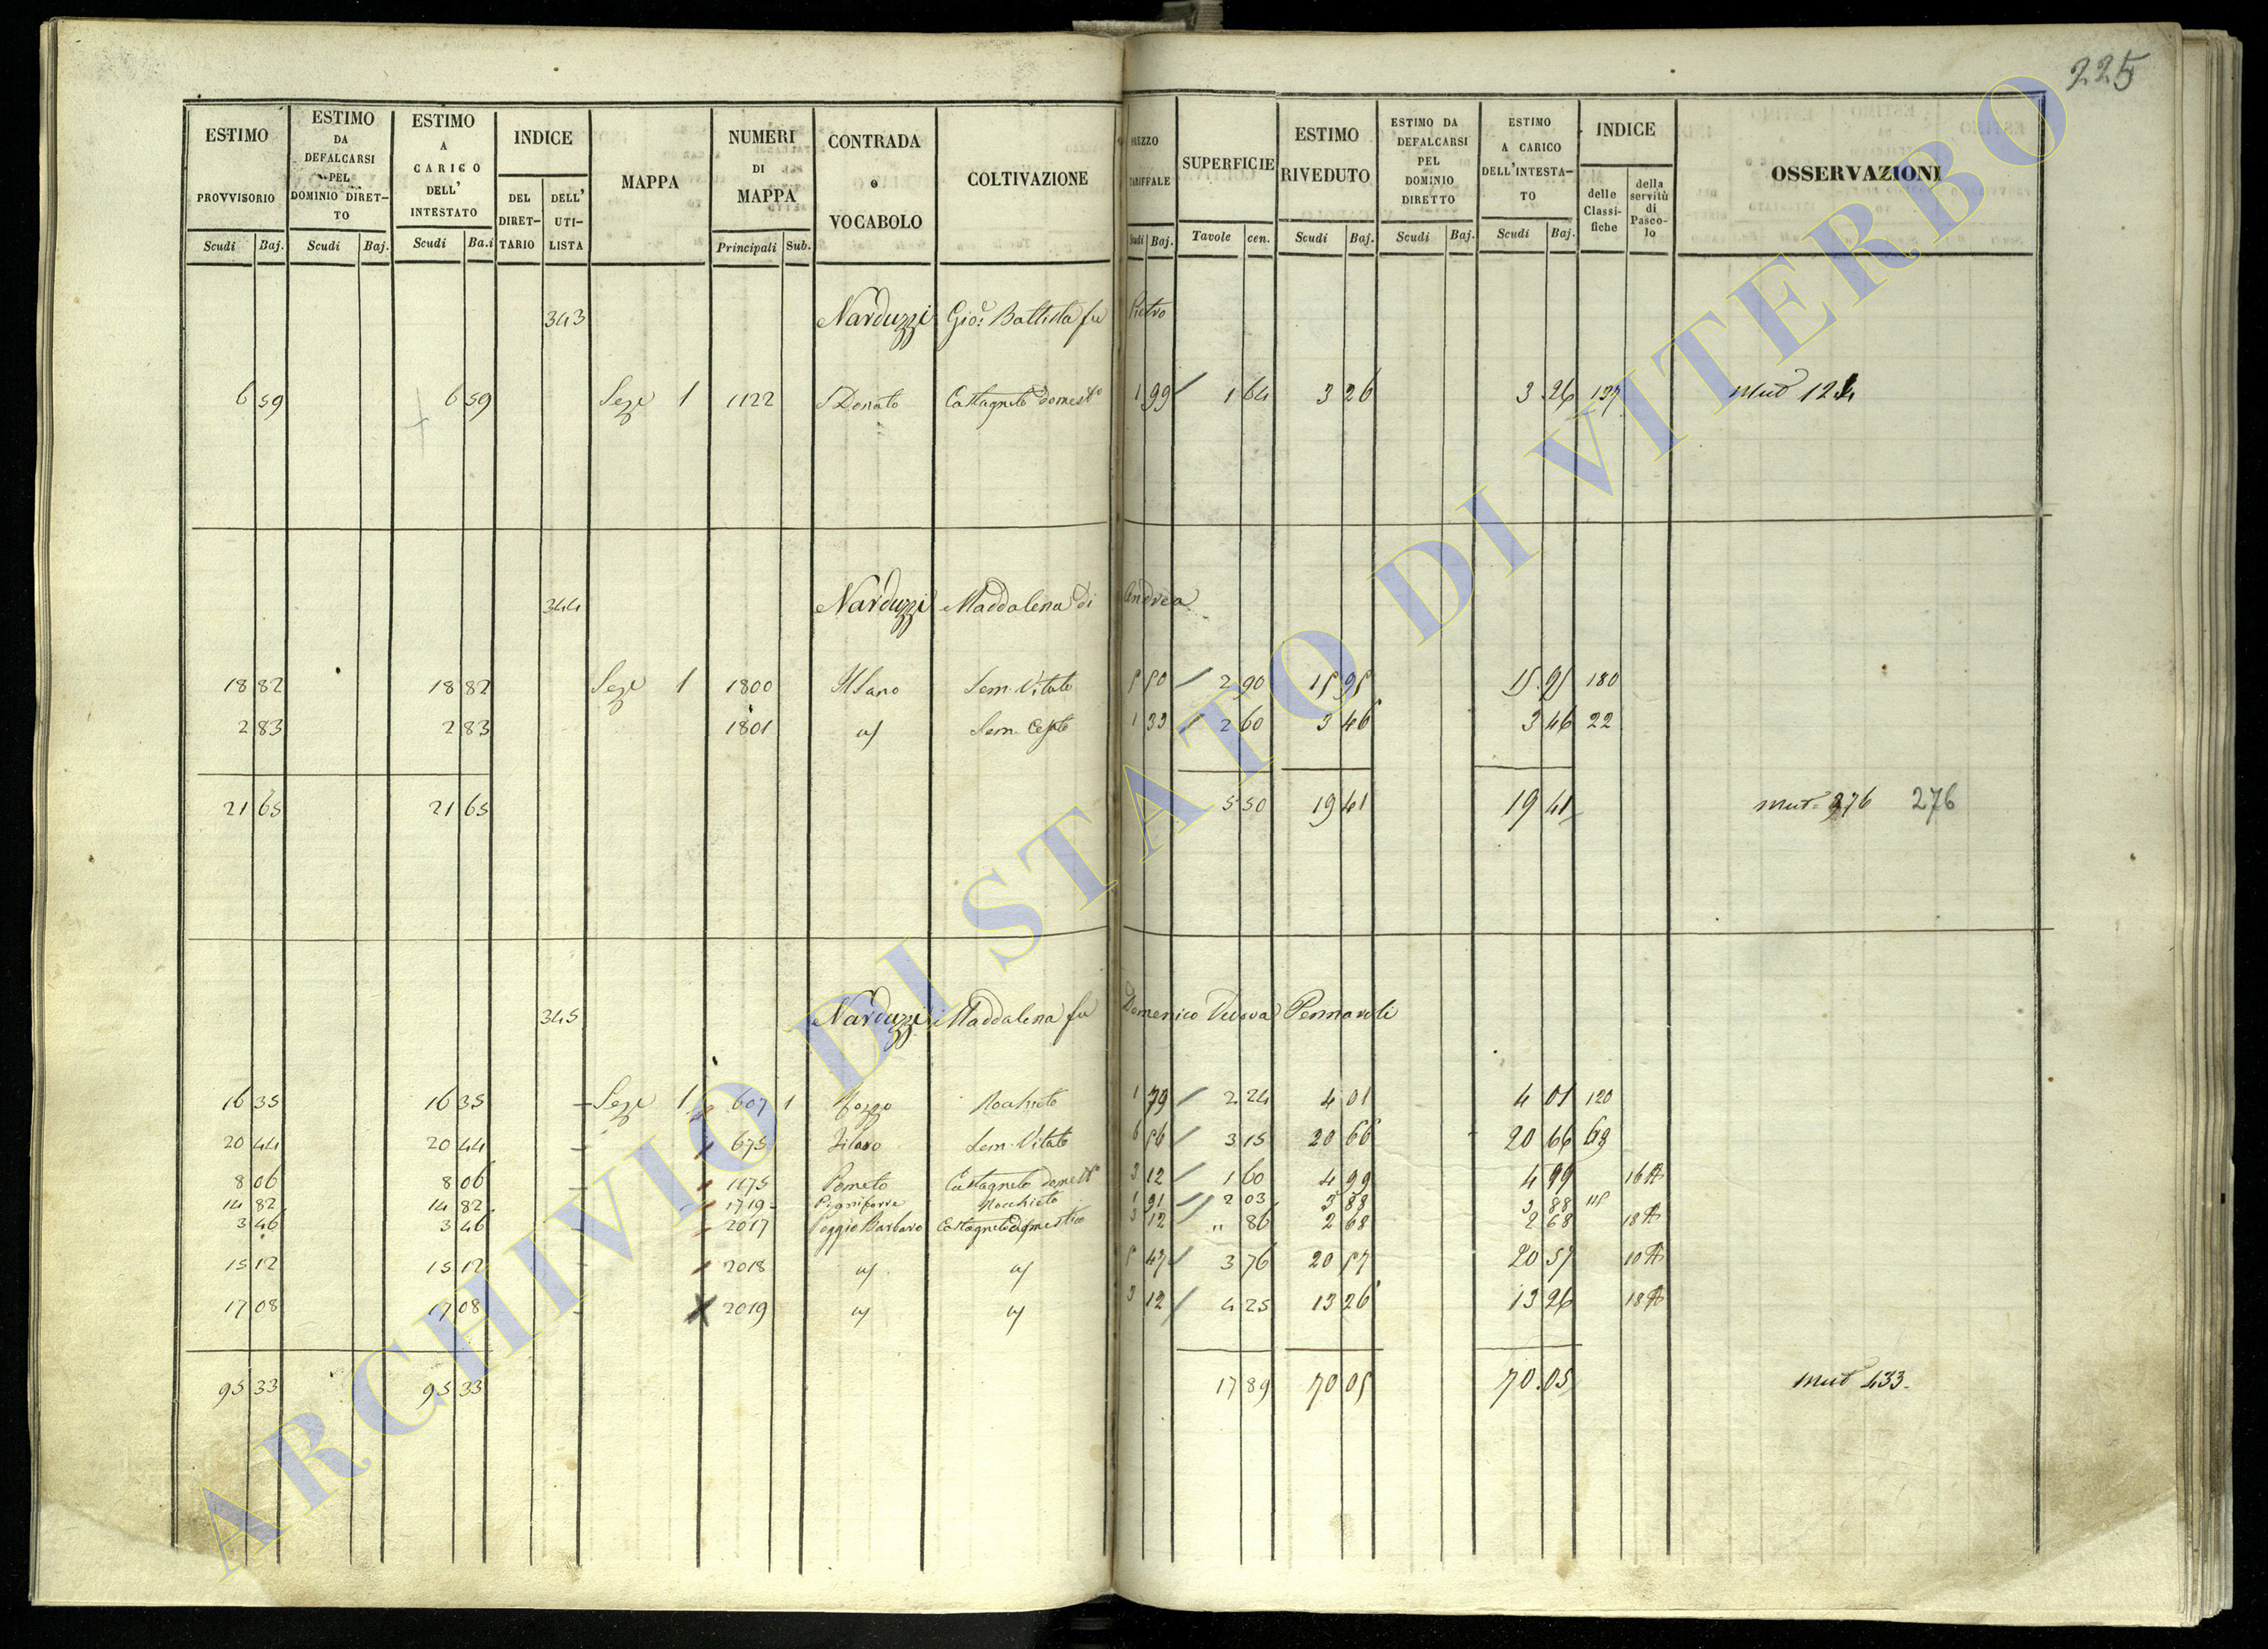 225
ESTIMO PROVVISORIO Scudi Baj. ESTIMO DA DEFALCARSI PEL DOMINIO DIRETTO Scudi Baj. ESTIMO A CARICO DELL' INTESTATO Scudi Ba.i INDICE DEL DIRETTARIO DELL' UTILISTA MAPPA NUMERI DI MAPPA Principali Sub. CONTRADA o VOCABOLO COLTIVAZIONE PREZZO TARIFFALE Scudi Baj. SUPERFICIE Tavole cen. ESTIMO RIVEDUTO Scudi Baj. ESTIMO DA DEFALCARSI PEL DOMINIO DIRETTO Scudi Baj. ESTIMO A CARICO DELL'INTESTATO Scudi Baj. INDICE delle Classifiche della servitù di Pascolo OSSERVAZIONI
343 Narduzzi Gio: Battista fu Pietro
6 59 6 59 Seze 1 1122 S Donato Castagneto domest° 1 99 / 1 64 3 26 3 26 137 Mut 124
344 Narduzzi Maddalena di Andrea
18 82 18 82 Seze 1 1800 Sem. Vitato 5 50 / 2 90 15 95 15 95 180
2 83 2 83 1801 Sem. 1 33 / 2 60 3 46 3 46 22
21 65 21 65 5 50 19 41 19 41 Mut. 276 276
345 Narduzzi Maddalena fu Domenico Pennavoli
16 35 16 35 Seze 1 607 1 Pozzo Nochieto 1 79 / 2 24 4 01 4 01 120
20 44 20 44 675 Sem. Vitato 6 56 / 3 15 20 66 20 66 68
8 06 8 06 1175 Pometo Castagneto domest° 3 12 / 1 60 4 99 4 99 16
14 82 14 82 1719 Nocchieto 1 91 / 2 03 3 88 3 88 115
3 46 3 46 2017 Poggio Barbaro Castagneto domestico 3 12 / " 86 2 68 2 68 18
15 12 15 12 2018 5 47 / 3 76 20 57 20 57 10
17 08 17 08 2019 3 12 / 4 25 13 26 13 26 18
95 33 95 33 17 89 70 05 70.05 Mut 433.
ARCHIVIO DI STATO DI VITERBO